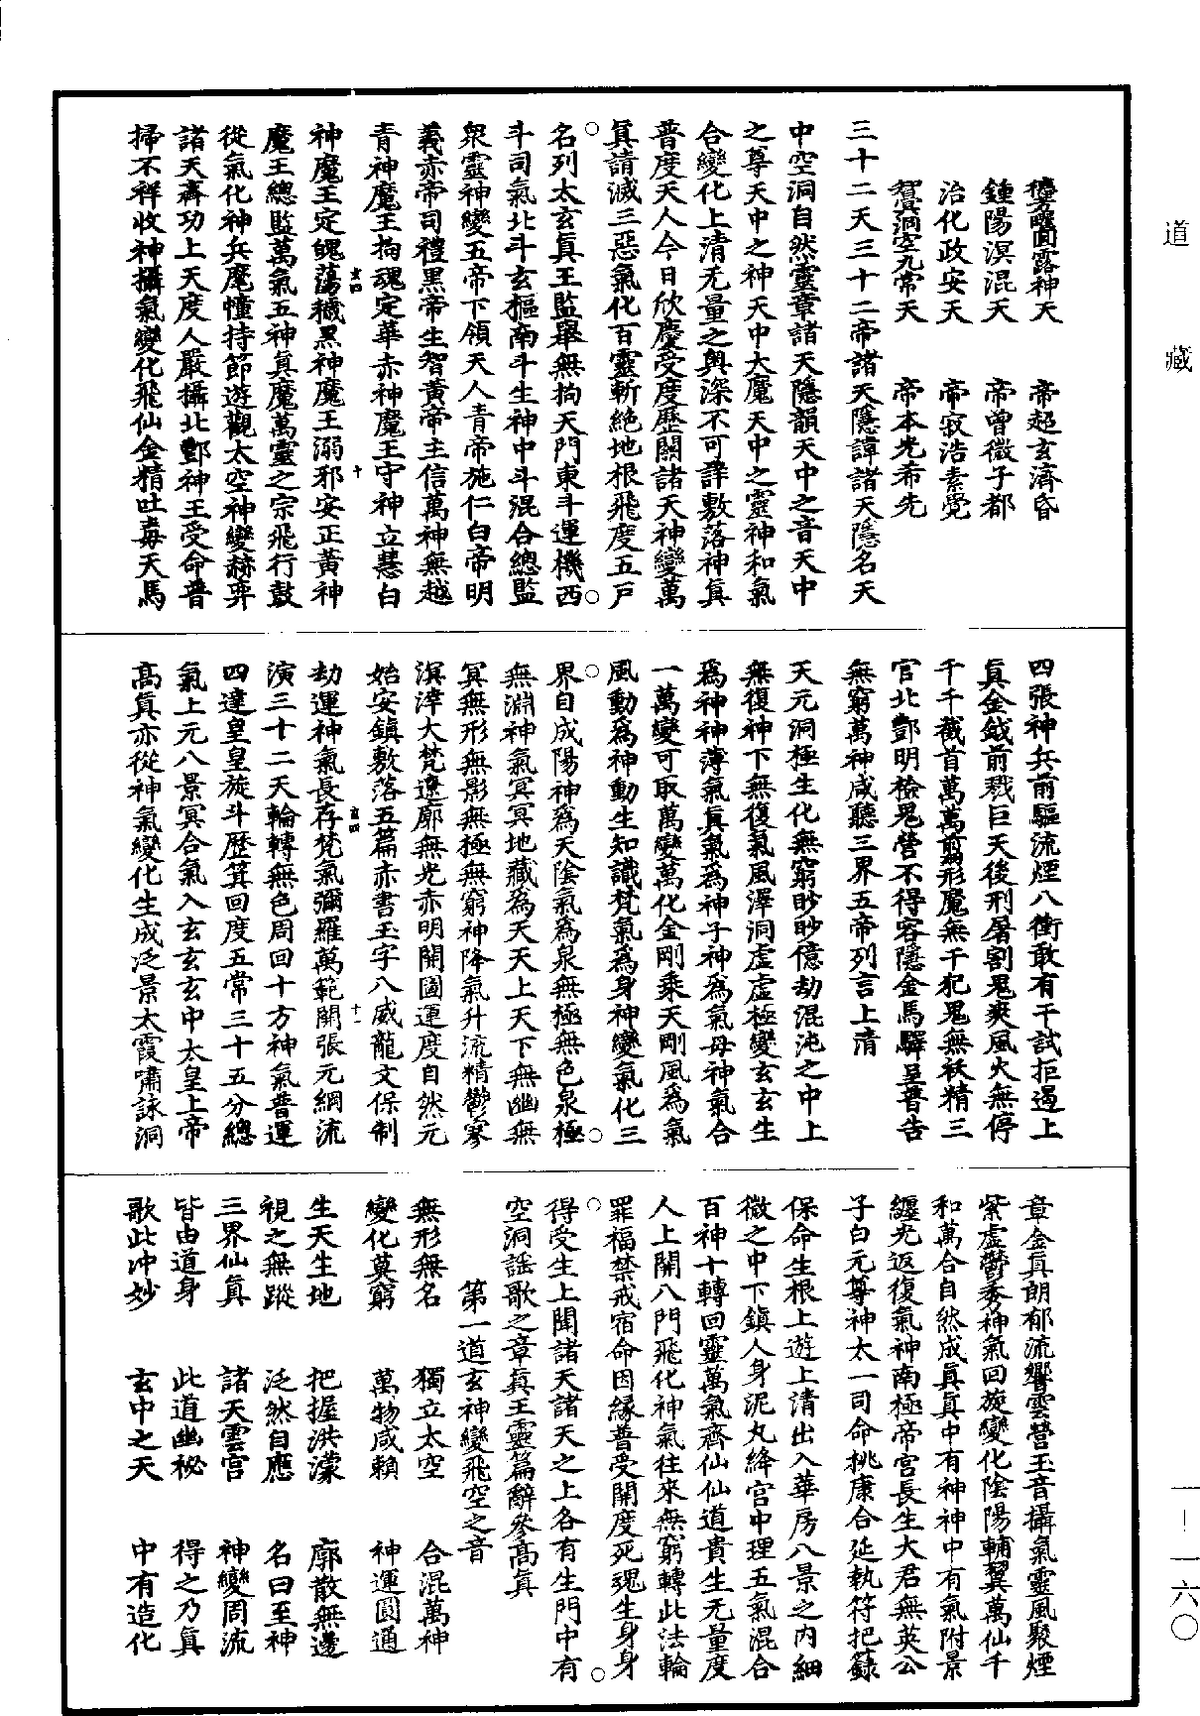 道藏
䆉羅曈圓露神天　帝超玄濟昏
鍾陽溟混天　帝曾微子都
治化政安天　帝寂浩素覺
智真洞空九常天　帝本光希先
三十二天三十二帝諸天隱諱諸天隱名天
中空洞自然靈章諸天隱韻天中之音天中
之尊天中之神天中大魔天中之靈神和氣
合變化上清无量之輿深不可詳敷落神真
普度天人今日欣慶受度歷關諸天神變萬
真請滅三惡氣化百靈斬絕地根飛度五戶
名列太玄真王監舉無拘天門東斗運機西
斗司氣北斗玄樞南斗生神中斗混合總監
眾靈神變五帝下領天人青帝施仁白帝明
義赤帝司禮黑帝生智黃帝主信萬神無越
青神魔王拘魂定華赤神魔王守神立慧白
神魔王定魄蕩穢黑神魔王溺邪安正黃神
魔王總監萬氣五神真魔萬靈之宗飛行鼓
從氣化神兵麾幢持節遊觀太空神變赫弈
諸天齊功上天度人嚴攝北酆神王受命普
掃不祥收神攝氣變化飛仙金精吐毒天馬
四張神兵前驅流煙八衝敢有干試拒遏上
真金鉞前戮巨天後刑屠割鬼爽風火無停
千千截首萬萬剪形魔無干犯鬼無袄精三
官北酆明檢鬼營不得容隱金馬驛呈普告
無窮萬神咸聽三界五帝列言上清
天元洞極生化無窮眇眇億劫混沌之中上
無復神下無復氣風澤洞虛虛極變玄玄生
爲神神薄氣真氣爲神子神爲氣母神氣合
一萬變可取萬變萬化金剛乘天剛風爲氣
風動爲神動生知識梵氣爲身神變氣化三
界自成陽神爲天陰氣爲泉無極無色泉極
無淵神氣冥冥地藏爲天天上天下無幽無
冥無形無影無極無窮神降氣升流精鬱寥
溟涬大梵遼廓無光赤明開圖運度自然元
始安鎮敷落五篇赤書玉字八威龍文保制
劫運神氣長存梵氣彌羅萬範開張元綱流
演三十二天輪轉無色周回十方神氣普運
四達皇皇旋斗歷箕回度五常三十五分總
氣上元八景冥合氣入玄玄玄中太皇上帝
高真亦從神氣變化生成泛景太霞嘯詠洞
章金真朗郁流響雲營玉音攝氣靈風聚煙
紫虛鬱秀神氣回旋變化陰陽輔翼萬仙千
和萬合自然成真真中有神神中有氣附景
纏光返復氣神南極帝宮長生大君無英公
子白元尊神太一司命桃康合延執符把籙
保命生根上遊上清出入華房八景之內細
微之中下鎮人身泥丸絳宮中理五氣混合
百神十轉回靈萬氣齊仙仙道貴生无量度
人上開八門飛化神氣往來無窮轉此法輪
罪福禁戒宿命因緣普受開度死魂生身身
得受生上聞諸天諸天之上各有生門中有
空洞謠歌之章真王靈篇辭參高真
第一道玄神變飛空之音
無形無名　獨立太空　合混萬神
變化莫窮　萬物咸賴　神運圓通
生天生地　把握洪濛　廓散無邊
視之無蹤　泛然自應　名曰至神
三界仙真　諸天雲宮　神變周流
皆由道身　此道幽祕　得之乃真
歌此冲妙　玄中之天　中有造化
一-一六〇